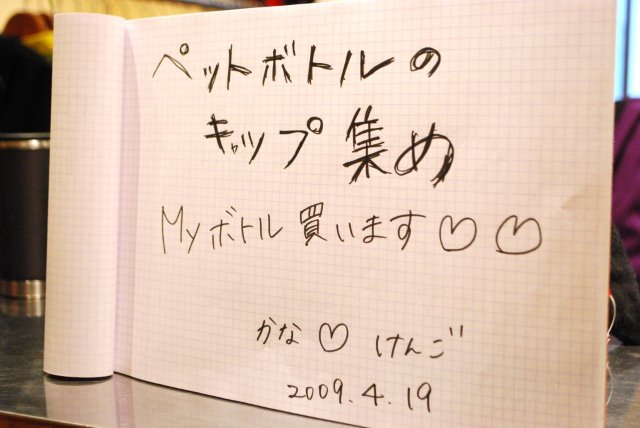 ペットボトルの
キャップ集め
Myボトル買います♡♡
かな♡けんご
2009.4.19